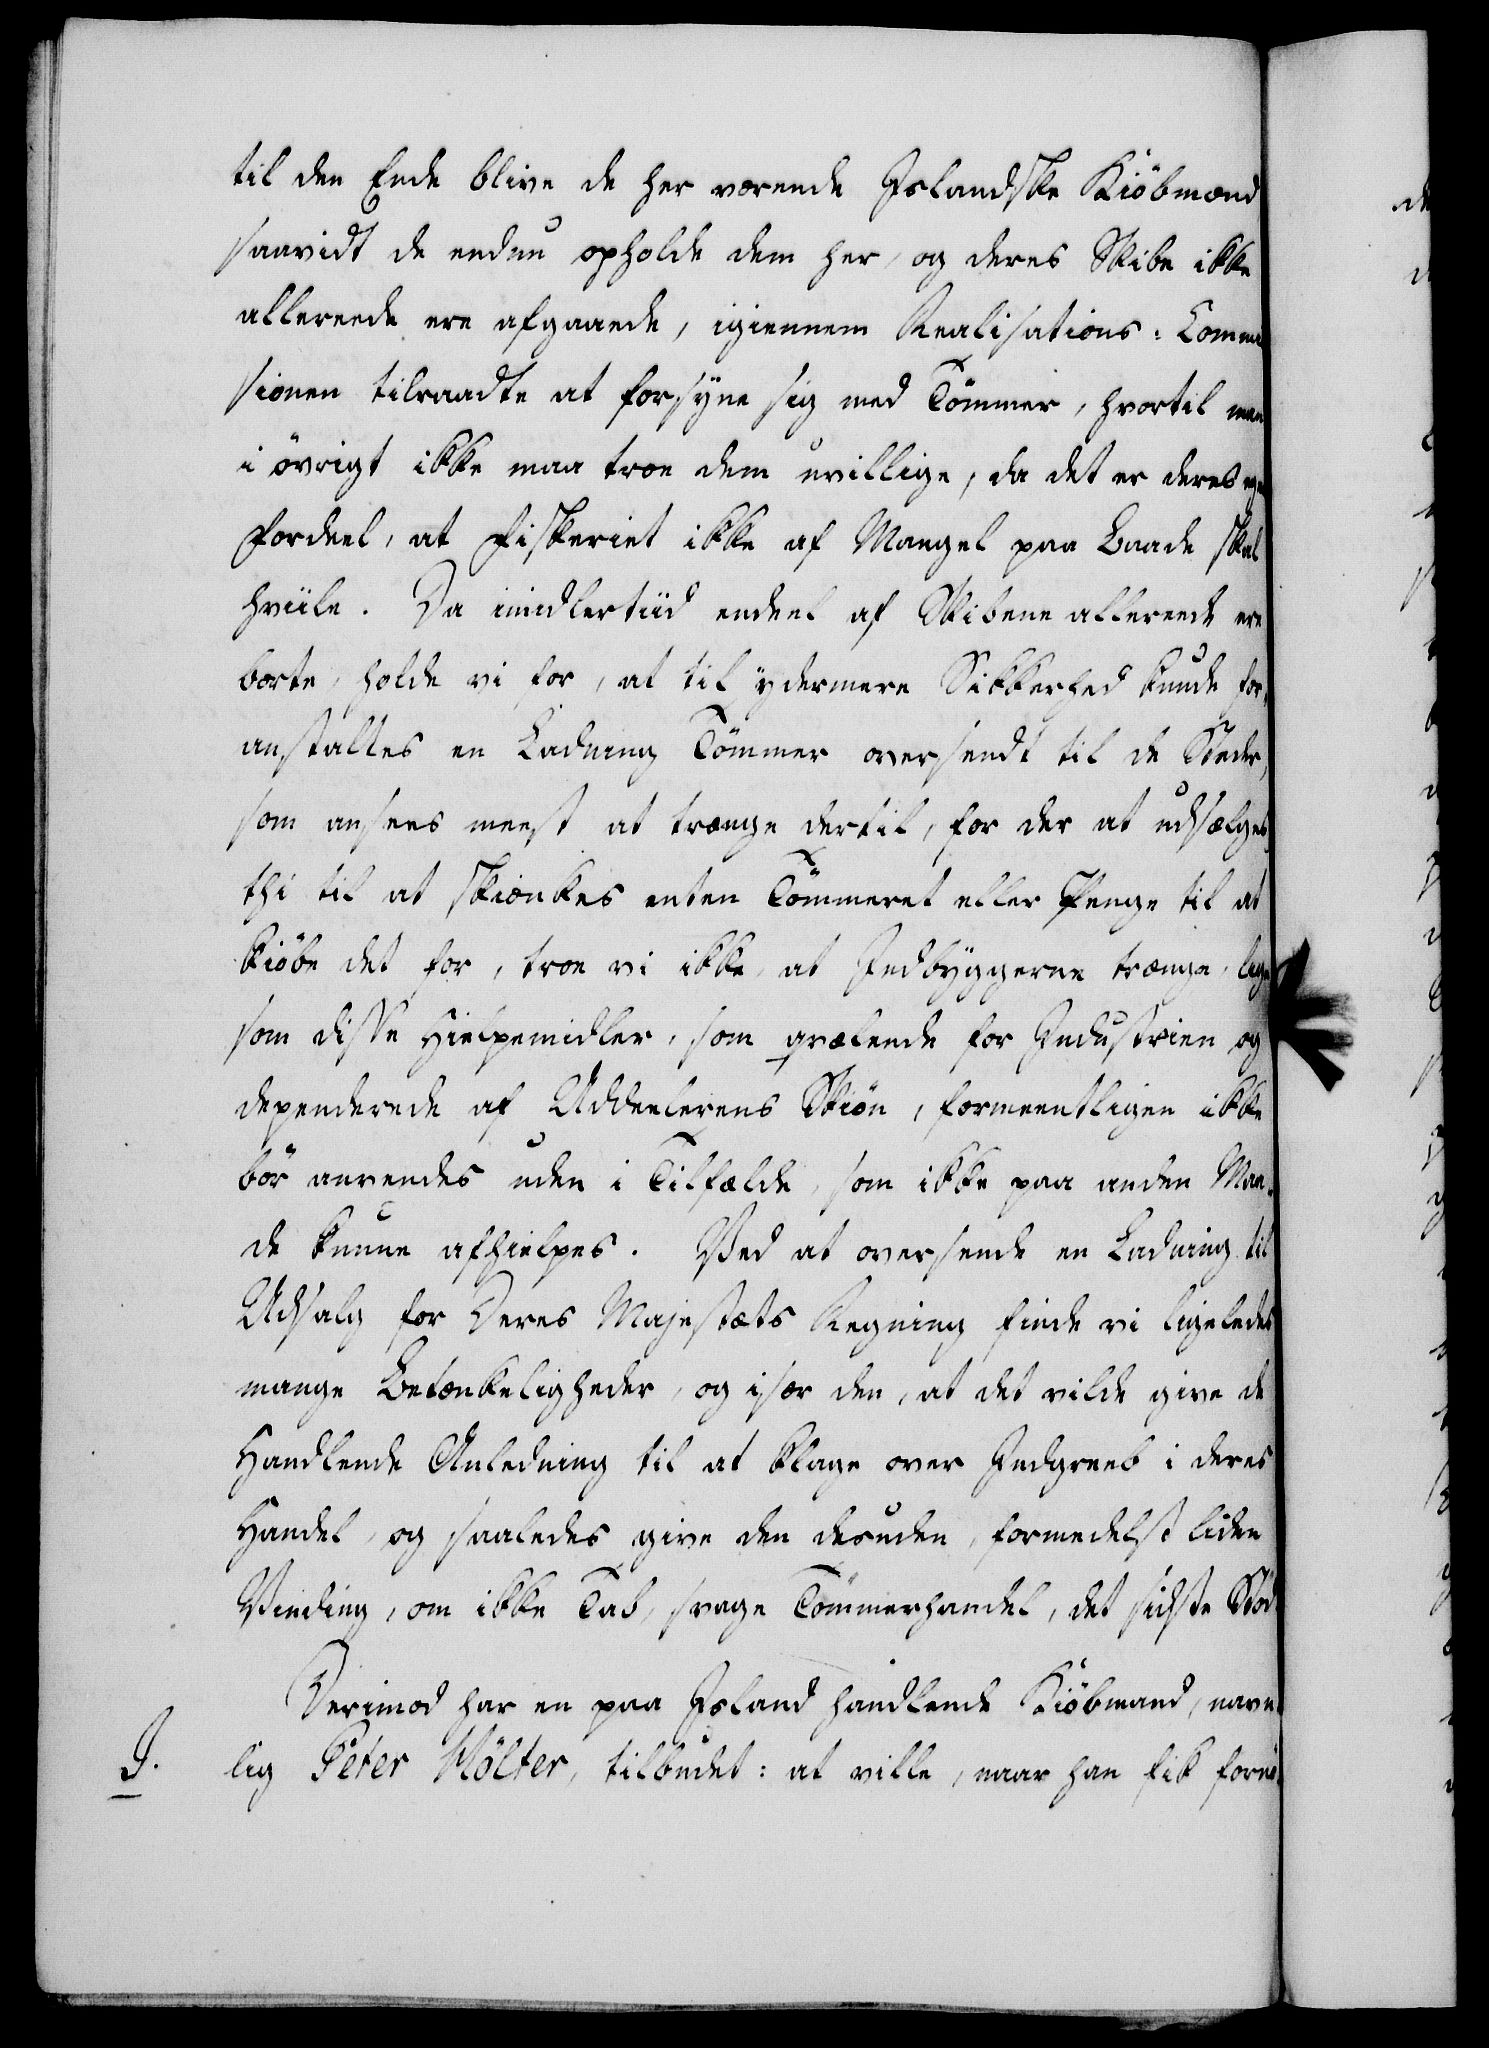 til den Ende blive de her værende Islandske Kiöbmænd
saavidt de endnu opholde dem her, og deres Skibe ikke
allereede ere afgaaede, igiennem Realisations-Commis
sionen tilraadte at forsÿne sig med Tömmer, hvortil man
i övrigt ikke maa troe dem uvillige, da det er deres egen
Fordeel, at Fiskeriet ikke af Mangel paa Baade skal
hviile. Da imidlertiid endeel af Skibene allereede ere
borte, holde vi for, at til ÿdermere Sikkerhed kunde for-
anstaltes en Ladning Tömmer oversendt til de Steder,
som ansees meest at trænge dertil, for der at udsælges
thi til at skiænkes enten Tömmeret eller Penge til at
kiöbe det for, troe vi ikke, at Indbÿggerne trænge, lige
som disse Hielpemidler, som qvælende for Industrien og
dependerede af Uddeelerens Skiön, formeentligen ikke
bör anvendes uden i Tilfælde, som ikke paa anden Maa-
de kunne afhielpes. Ved at oversende en Ladning til
Udsalg for Deres Majestæts Regning finde vi ligeledes
mange Betænkeligheder, og især den, at det vilde give de
Handlende Anledning til at klage over Indgreeb i deres
Handel, og saaledes give den desuden, formedelst liden
Vinding, om ikke Tab, svage Tömmerhandel, det sidste Stöd.
Derimod har en paa Island handlende Kiöbmand, navn-
J. lig Peter Hölter, tilbudet: at ville, naar han fik fornö-